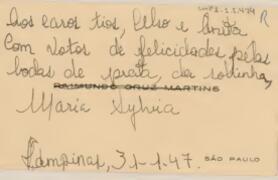 Aos caros tios, Celso e Anita
Com votos de felicidades pelas
bodas de prata, da sobrinha,
RAIMUNDO CRUZ MARTINS
Maria Sylvia
Campinas, 31-1-47. SÃO PAULO